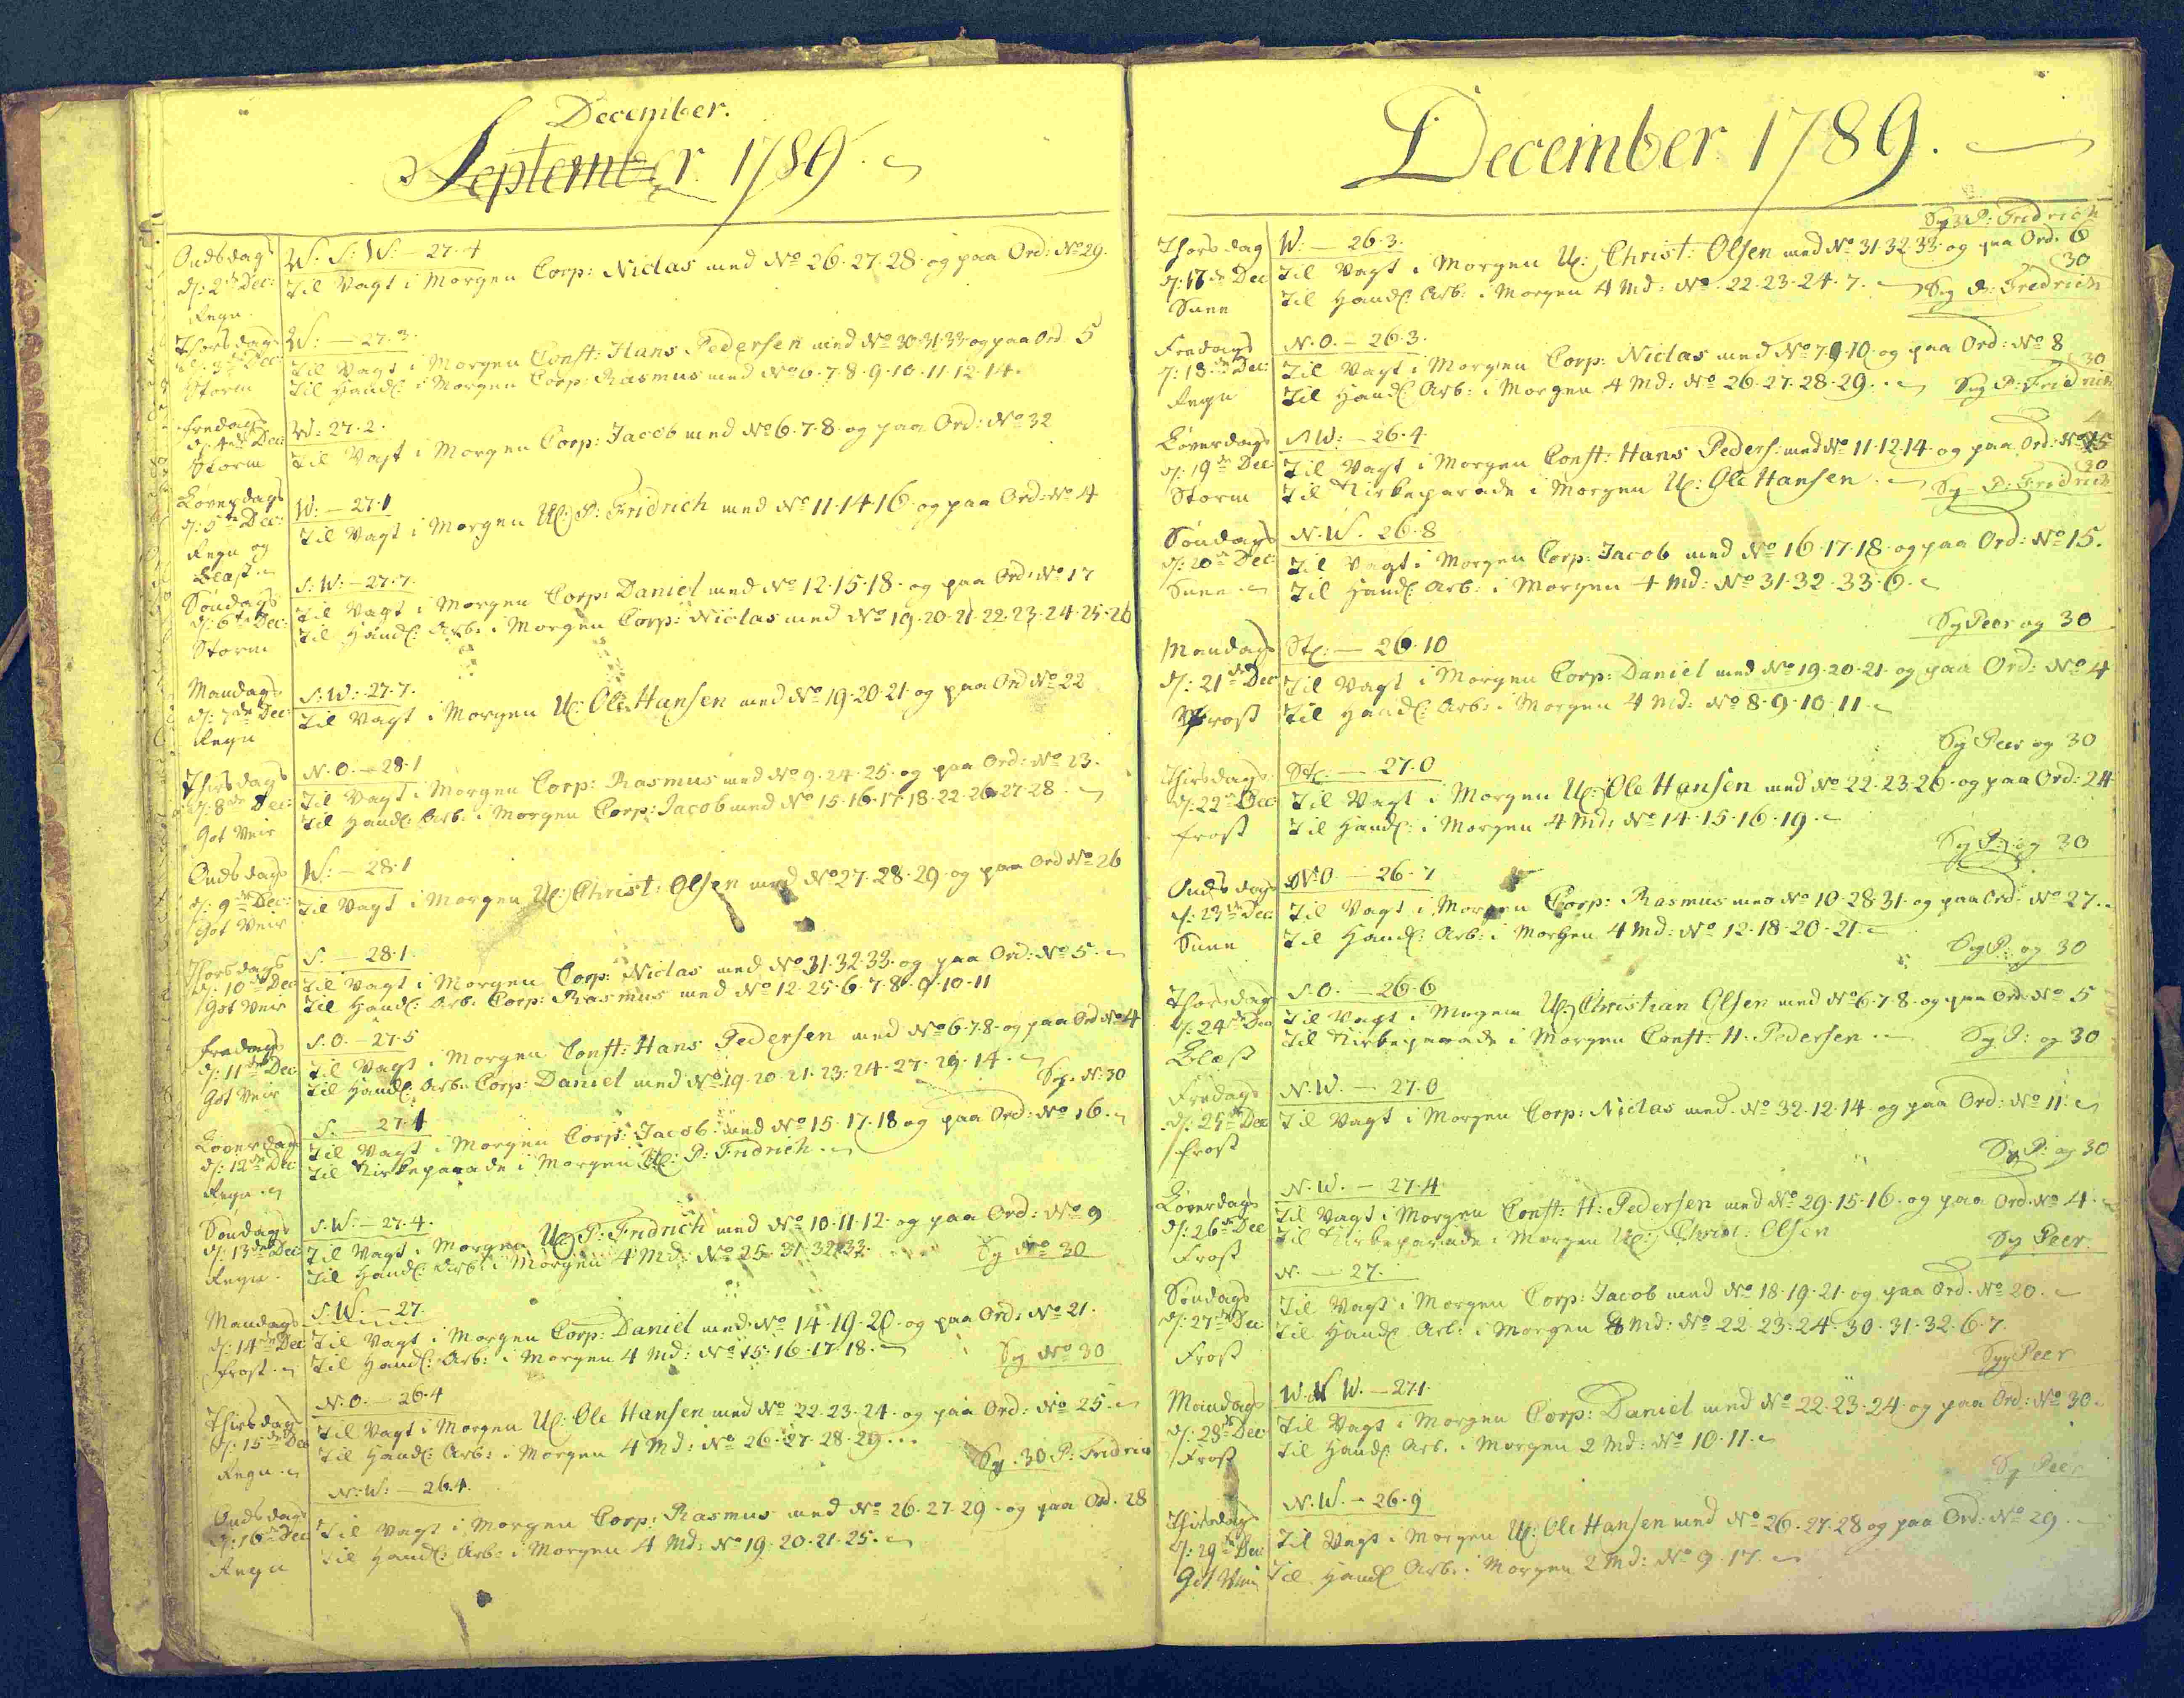 December.
September 1789.
Ondsdag d: 2de Dec: Regn
W. S: W: — 27.4
Til Vagt i Morgen Corp: Niclas med No 26.27.28. og paa Ord: No 29.
Thorsdag d: 3de Dec: Storm
W: — 27.3.
Til Vagt i Morgen Const: Hans Pedersen med No 30.31.33 og paa Ord. 5
Til Handl: i Morgen Corp: Rasmus med No 6.7.8.9.10.11.12.14.
Fredag d: 4de Dec: Storm
W: 27.2.
Til Vagt i Morgen Corp: Jacob med No 6.7.8 og paa Ord: No 32
Løverdag d: 5te Dec: Regn og Blæst
W: — 27.1
Til Vagt i Morgen Uc: P: Fridrich med No 11.14.16. og paa Ord: No 4
Søndag d: 6te Dec: Storm
S.W: — 27.7.
Til Vagt i Morgen Corp: Daniel med No 12.15.18. og paa Ord: No 17
Til Handl: Arb: i Morgen Corp: Niclas med No 19.20.21.22.23.24.25.26
Mandag d: 7de Dec: Regn
S:W: 27.7.
Til Vagt i Morgen Uc: Ole Hansen med No 19.20.21 og paa Ord No 22
Thirsdag d: 8de Dec: Got Veir
N.O. — 28.1
Til Vagt i Morgen Corp: Rasmus med No 9.24.25. og paa Ord: No 23.
Til Handl: Arb: i Morgen Corp: Jacob med No 15.16.17.18.22.26.27.28.
Ondsdag d: 9de Dec: Got Veir
W: — 28.1
Til Vagt i Morgen Uc: Christ: Olsen med No 27.28.29 og paa Ord No 26
Thorsdag d: 10de Dec: Got Veir
S. — 28.1.
Til Vagt i Morgen Corp: Niclas med No 31.32.33. og paa Ord: No 5.
Til Handl: Arb. Corp: Rasmus med No 12.25.6.7.8.9.10.11
Fredag d: 11de Dec: Got Veir
S.O. — 27.5
Til Vagt i Morgen Const: Hans Pedersen med No 6.7.8. og paa Ord No 4
Til Handl: Arb: Corp: Daniel med No 19.20.21.23.24.27.29.14.
Syg. N: 30
Løverdag d: 12de Dec: Regn
S. — 27.4
Til Vagt i Morgen Corp: Jacob med No 15.17.18 og paa Ord: No 16.
Til Kirkeparade i Morgen Uc: P: Fridrich.
Søndag d: 13de Dec: Regn
S.W: — 27.4.
Til Vagt i Morgen Uc: P: Fridrich med No 10.11.12. og paa Ord: No 9
Til Handl: Arb: i Morgen 4 Md: No 25.31.32.33.
Syg No 30
Mandag d: 14de Dec Frost
S.W. — 27.
Til Vagt i Morgen Corp: Daniel med No 14.19.20. og paa Ord: No 21.
Til Handl: Arb: i Morgen 4 Md: No 15.16.17.18.
Syg No 30
Thirsdag d: 15de Dec Regn
N.O. — 26.4
Til Vagt i Morgen Uc: Ole Hansen med No 22.23.24. og paa Ord: No 25.
Til Handl: Arb: i Morgen 4 Md: No 26.27.28.29.
Syg. 30 P: Fridrich
Ondsdag d: 16de Dec Regn
N.W: — 26.4.
Til Vagt i Morgen Corp: Rasmus med No 26.27.29. og paa Ord. 28
Til Handl: Arb: i Morgen 4 Md: No 19.20.21.25.
December 1789.
Syg P: Fridrich
Thorsdag d: 17de Dec Snee
W: — 26.3.
Til Vagt i Morgen Uc: Christ: Olsen med No 31.32.33 og paa Ord. 6
Til Handl: Arb: i Morgen 4 Md: No 22.23.24.7.
30
Syg P: Fredrich
Fredag d: 18de Dec: Regn
N.O. — 26.3.
Til Vagt i Morgen Corp: Niclas med No 7.9.10. og paa Ord: No 8
Til Handl: Arb: i Morgen 4 Md: No 26.27.28.29.
30
Syg P: Fridrich
Løverdag d: 19de Dec: Storm
S.W: — 26.4
Til Vagt i Morgen Const: Hans Peders: med No 11.12.14 og paa Ord: No 15
Til Kirkeparade i Morgen Uc: Ole Hansen.
30
Syg P: Fredrich
Søndag d: 20de Dec: Snee
N.W. 26.8
Til Vagt i Morgen Corp: Jacob med No 16.17.18 og paa Ord: No 15.
Til Handl: Arb: i Morgen 4 Md: No 31.32.33.6.
Syg Peer og 30
Mandag d: 21de Dec Frost
Stl: — 26.10
Til Vagt i Morgen Corp: Daniel med No 19.20.21. og paa Ord: No 4
Til Handl: Arb: i Morgen 4 Md: No 8.9.10.11.
Syg Peer og 30
Thirsdag d: 22de Dec: Frost
Stl: — 27.0
Til Vagt i Morgen Uc: Ole Hansen med No 22.23.26. og paa Ord: 24
Til Handl: i Morgen 4 Md: No 14.15.16.19.
Syg P: og 30
Ondsdag d: 23de Dec: Snee
N.O — 26.7
Til Vagt i Morgen Corp: Rasmus med No 10.28.31. og paa Ord: No 27.
Til Handl: Arb: i Morgen 4 Md: No 12.18.20.21.
Syg P: og 30
Thorsdag d: 24de Dec Blæst
S.O. — 26.6
Til Vagt i Morgen Uc: Christian Olsen med No 6.7.8. og paa Ord. No 5
Til Kirkeparade i Morgen Const: H. Pedersen.
Syg P: og 30
Fredag d: 25de Dec Frost
N.W. — 27.0
Til Vagt i Morgen Corp: Niclas med No 32.12.14 og paa Ord: No 11.
Syg P: og 30
Løverdag d: 26de Dec Frost
N.W. — 27.4
Til Vagt i Morgen Const: H: Pedersen med No 29.15.16. og paa Ord. No 4.
Til Kirkeparade i Morgen Uc: Christ: Olsen
Syg Peer.
Søndag d: 27de Dec: Frost
N. — 27.
Til Vagt i Morgen Corp: Jacob med No 18.19.21 og paa Ord. No 20.
Til Handl: Arb: i Morgen 8 Md: No 22.23.24.30.31.32.6.7.
Syg Peer
Mandag d: 28de Dec: Frost
W.N W. — 27.1.
Til Vagt i Morgen Corp: Daniel med No 22.23.24 og paa Ord: No 30.
Til Handl: Arb. i Morgen 2 Md: No 10.11.
Syg Peer
Thirsdag d: 29de Dec: Got Veir
N.W. — 26.9
Til Vagt i Morgen Uc: Ole Hansen med No 26.27.28 og paa Ord: No 29.
Til Handl Arb: i Morgen 2 Md: No 9.17.